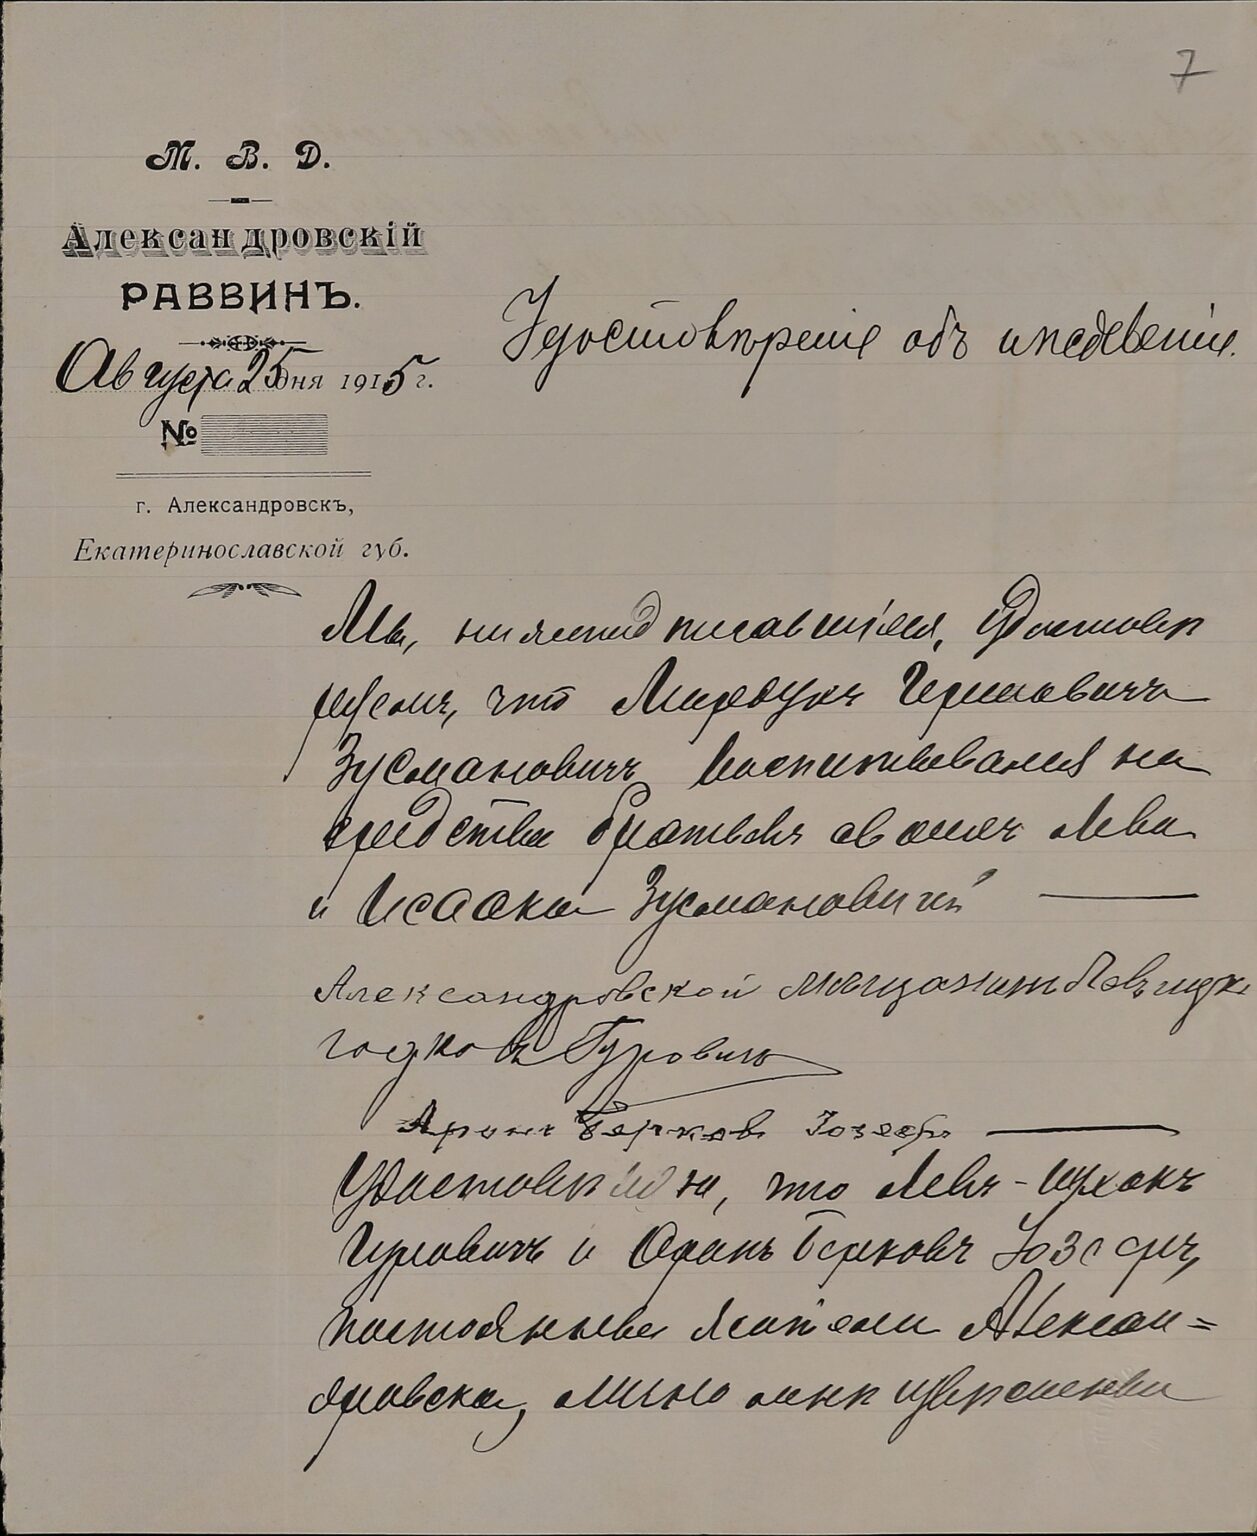 7
М. В. Д.
Александровскій
РАВВИНЪ.
Августа 25 дня 1915 г.
№
г. Александровскъ,
Екатеринославской губ.
Удостовѣреніе объ иждевеніи.
Мы, нижеподписавшіеся, удостовѣ
ряемъ, что Мордухъ Гершовичъ
Зусмановичъ воспитывался на
средства братьевъ своихъ Лева
и Исаака Зусмановичей
Александровской мѣщанинъ Левъ ицко
Гуровичъ
Аронъ Берковъ Іозефъ
Удостовѣряю, что Левъ-Ицхокъ
Гуровичъ и Аронъ Берковъ Іозефъ,
постоянные жители Алексан=
дровска, лично мнѣ